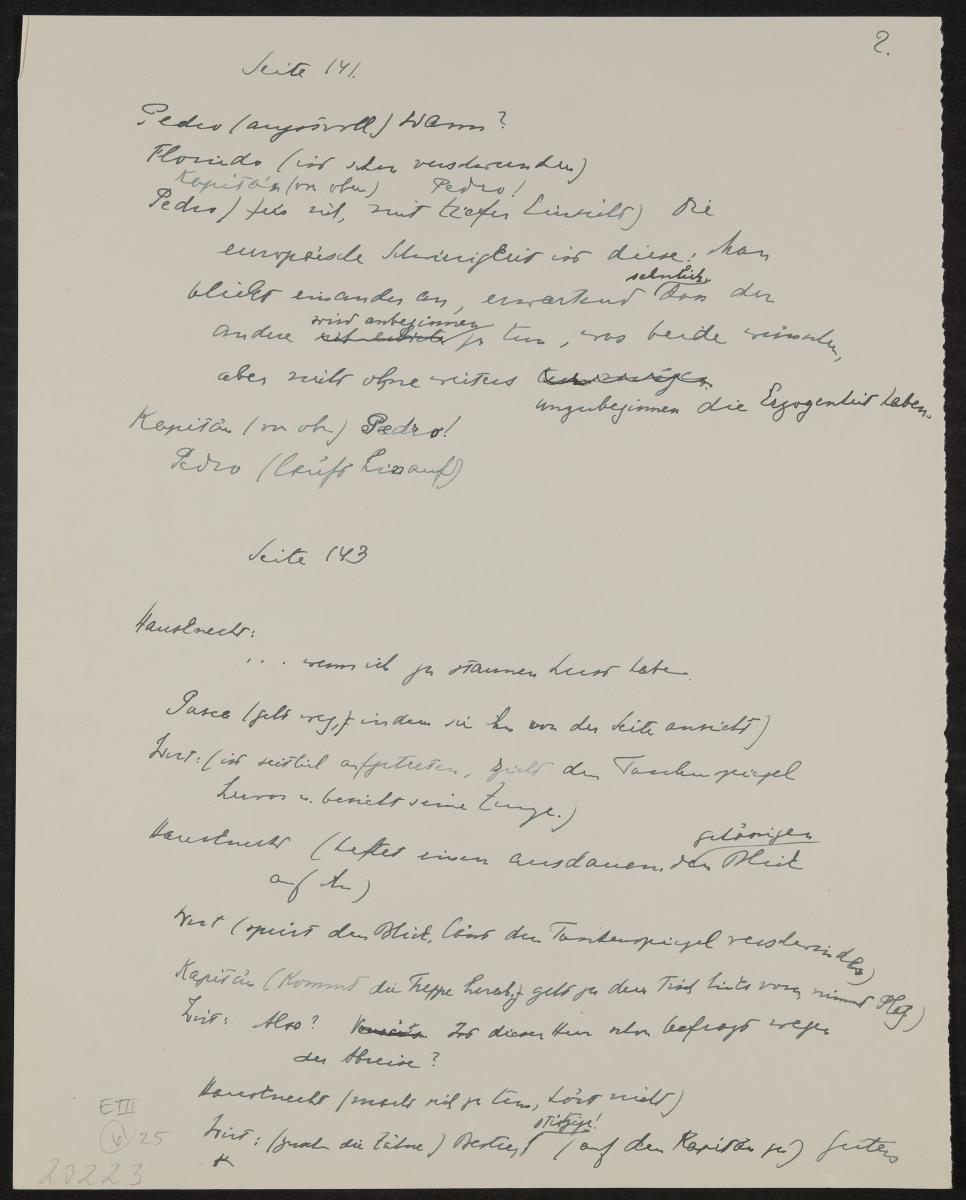 2.
Seite 141.
Pedro (angstvoll) Wann?
Florindo (ist schon verschwunden)
Kapitän (von oben) Pedro!
Pedro) für sich, mit tiefer Einsicht) Die
europäische Schwierigkeit ist diese: Man
sehnlich
blickt einander an, erwartend dass der
wird anbeginnen
andere zu tun, was beide wünschen,
aber nicht ohne weiters
anzubeginnen die Erzogenheit haben.
Kapitän (von oben) Pedro!
Pedro (läuft hinauf)
Seite 143
Hausknecht:
... wenn ich zu staunen Lust habe.
Pasca (geht weg, indem sie ihn von der Seite ansieht)
Wirt: (ist seitlich aufgetreten, zieht den Taschenspiegel
heraus u. besieht seine Zunge.)
gehässigen
Hausknecht (heftet einen ausdauernden Blick
auf ihn)
Wirt (spürt den Blick, lässt den Taschenspiegel verschwinden)
Kapitän (kommt die Treppe herab, geht zu dem Tisch links vorn, nimmt Platz)
Wirt: Also? Ist dieser Herr schon befragt wegen
der Abreise?
Hausknecht (macht sich zu tun, hört nicht)
Wirt: (die Zähne) Bestie! (auf den Kapitän zu) Guten
ETIII
6 25
20223